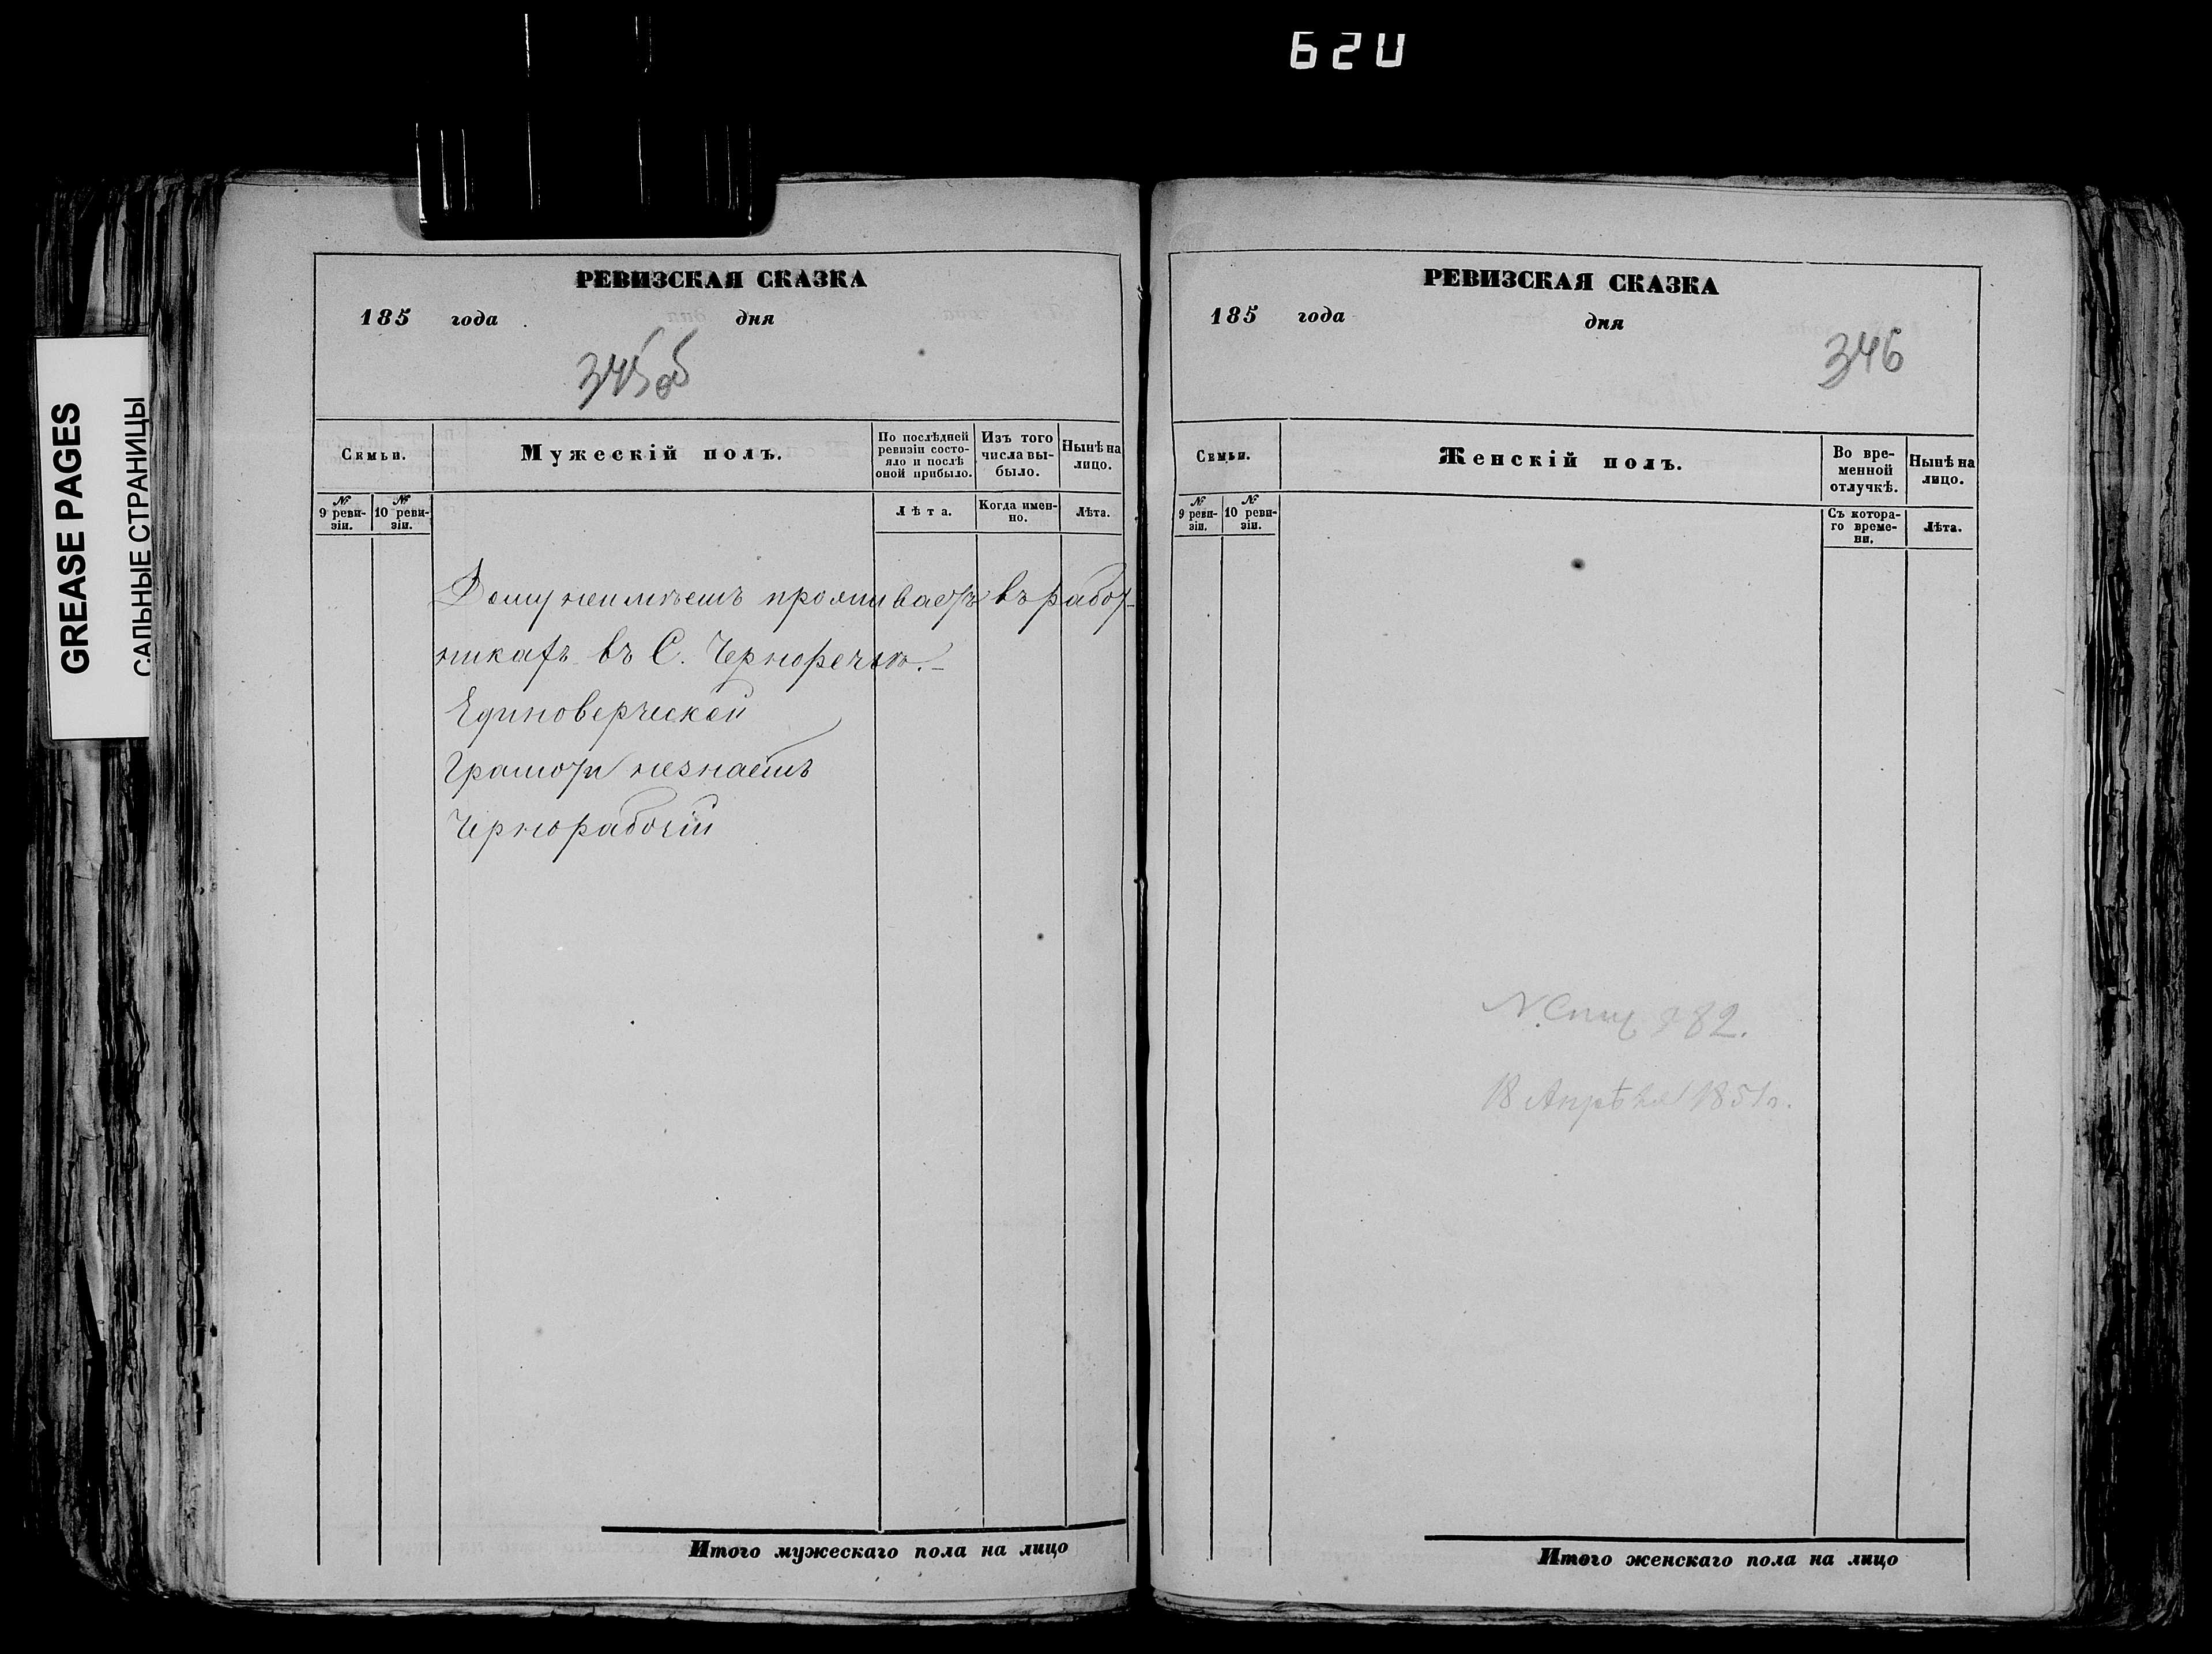 620
GREASE PAGES
САЛЬНЫЕ СТРАНИЦЫ
РЕВИЗСКАЯ СКАЗКА
185 года дня
345об
Семьи.
Мужескій полъ.
По послѣдней ревизіи состояло и послѣ оной прибыло.
Изъ того числа выбыло.
Нынѣ на лицо.
№ 9 ревизіи.
№ 10 ревизіи.
Лѣта.
Когда именно.
Лѣта.
Дому неимѣетъ проживаетъ въ работ-
никахъ въ С. Черноречьѣ.-
Единоверческой
Грамоты незнаетъ
Чернорабочій
Итого мужескаго пола на лицо
РЕВИЗСКАЯ СКАЗКА
185 года дня
346
Семьи.
Женскій полъ.
Во временной отлучкѣ.
Нынѣ на лицо.
№ 9 ревизіи.
№ 10 ревизіи.
Съ котораго времени.
Лѣта.
82.
18 Апрѣля 1851 г.
Итого женскаго пола на лицо